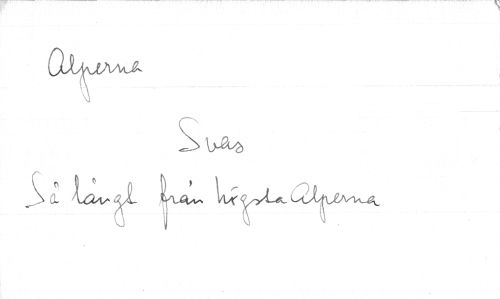 Alperna
Svas
Så långt från högsta Alperna